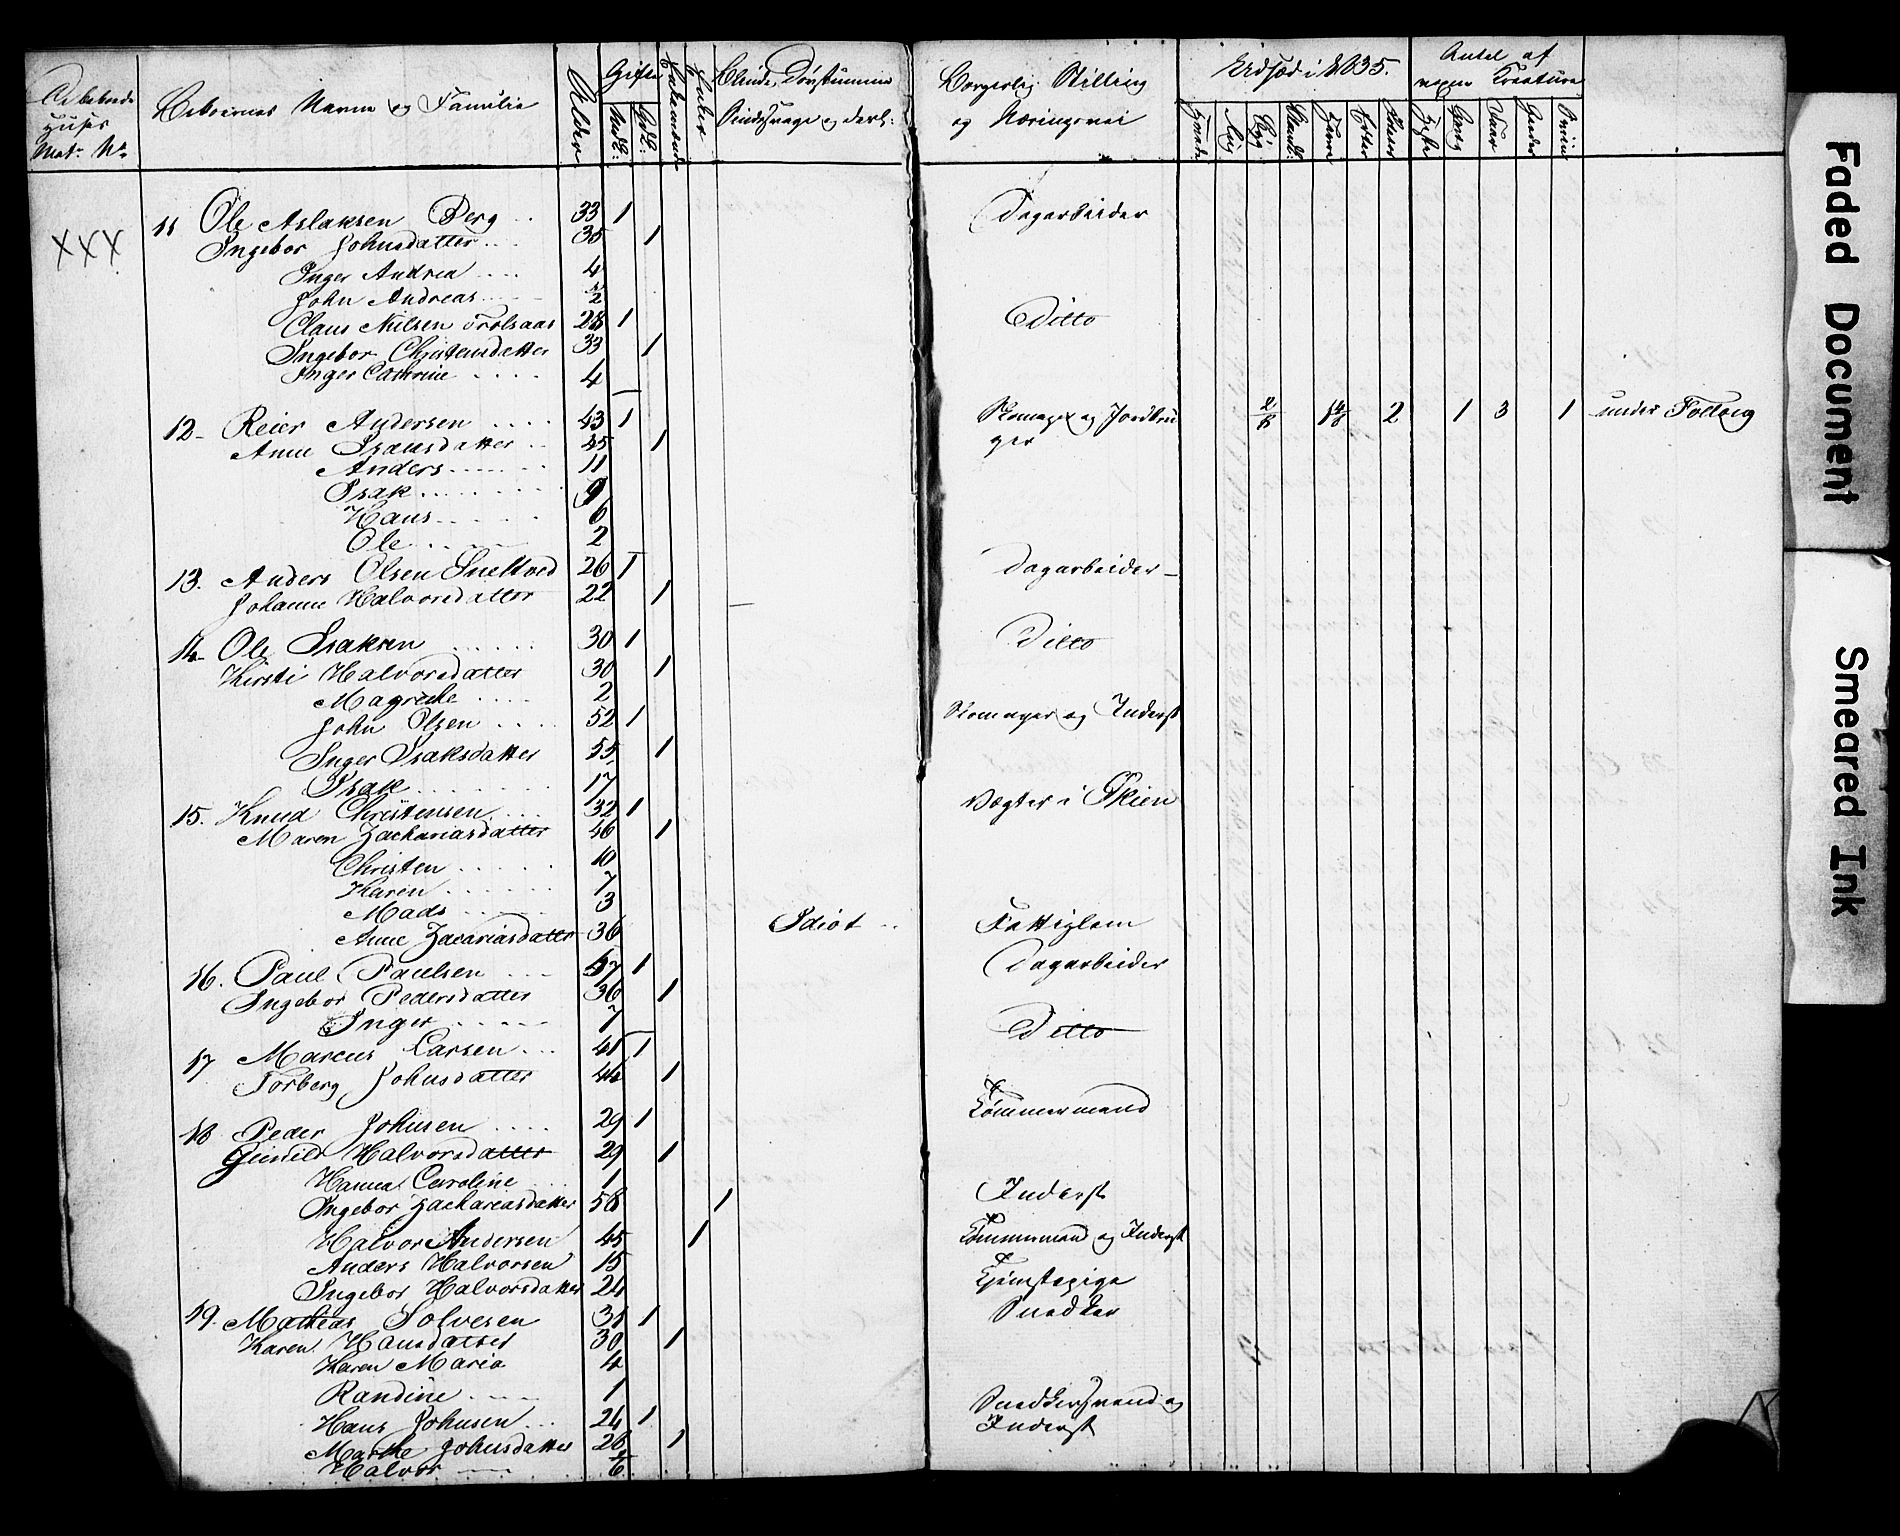 Bebernes Navne og Familie
Alder
Gifte
Mdk:
Qdk:
Enker
Blinde, Døvstumme
Sindssvage og derl:
Borgerlig Stilling
og Næringsvei
Udsæd i 1835.
Antal af
Hvede
Rug
Byg
Blandk:
Havre
Erter
Poteter
Heste
Qvæg
Faar
Geder
Sviin
XXX
11 Ole Aslaksen Berg 33 1 Dagarbeider
Ingebor Johnsdatter 35 1
Inger Andrea 4
John Andreas 2
Claus Nilsen Trolsaas 28 1 Ditto
Ingebor Christensdatter 33 1
Inger Cathrine 4
12 Reier Andersen 43 1 Skomager og Jordbru 2/8 1 4/8 2 1 3 1 under Follaug
Anne Isaksdatter 45 1 ger
Anders 11
Isak 9
Hans 6
Ole 2
13. Anders Olsen Sneltved 26 1 Dagarbeider
Johanne Halvorsdatter 22 1
14 Ole Isaksen 30 1 Ditto
Kirsti Halvorsdatter 30 1
Magrethe 2
John Olsen 52 1 Skomager og Inderst
Inger Isaksdatter 55 1
Isak 17
15. Knud Christensen 32 1 Vægter i Skien
Maren Zachariasdatter 46 1
Christen 10
Karen 7
Mads 3
Anne Zacariasdatter 36 Idiot Fattiglem
16. Paul Paulsen 57 1 Dagarbeider
Ingebor Pedersdatter 36 1
Inger 7
17 Marcus Larsen 41 1 Ditto
Torberg Johnsdatter 44 1
18 Peder Johnsen 29 1 Tømmermand
Gunild Halvorsdatter 29 1
Hanna Caroline 1
Ingebor Zachariasdatter 58 1 Inderst
Halvor Andersen 45 1 Tømmermand og Inderst
Anders Halvorsen 15
Ingebor Halvorsdatter 24 Tjenstepige
19. Mathias Solvesen 38 1 Snedker
Karen Hansdatter 30 1
Karen Maria 4
Randine 1
Hans Johnsen 24 1 Snedkersvend og
Inderst
Marthe Johnsdatter 26 1
Halvor
Faded Document
Smeared Ink